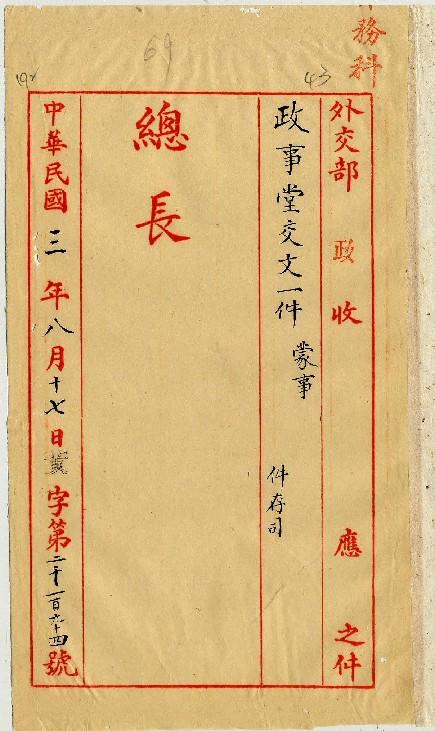 務科
69
43
外交部 政 收 應 之件
政事堂交文一件 蒙事 件存司
總長
中華民國三年八月十七日 字第二千一百六十四號